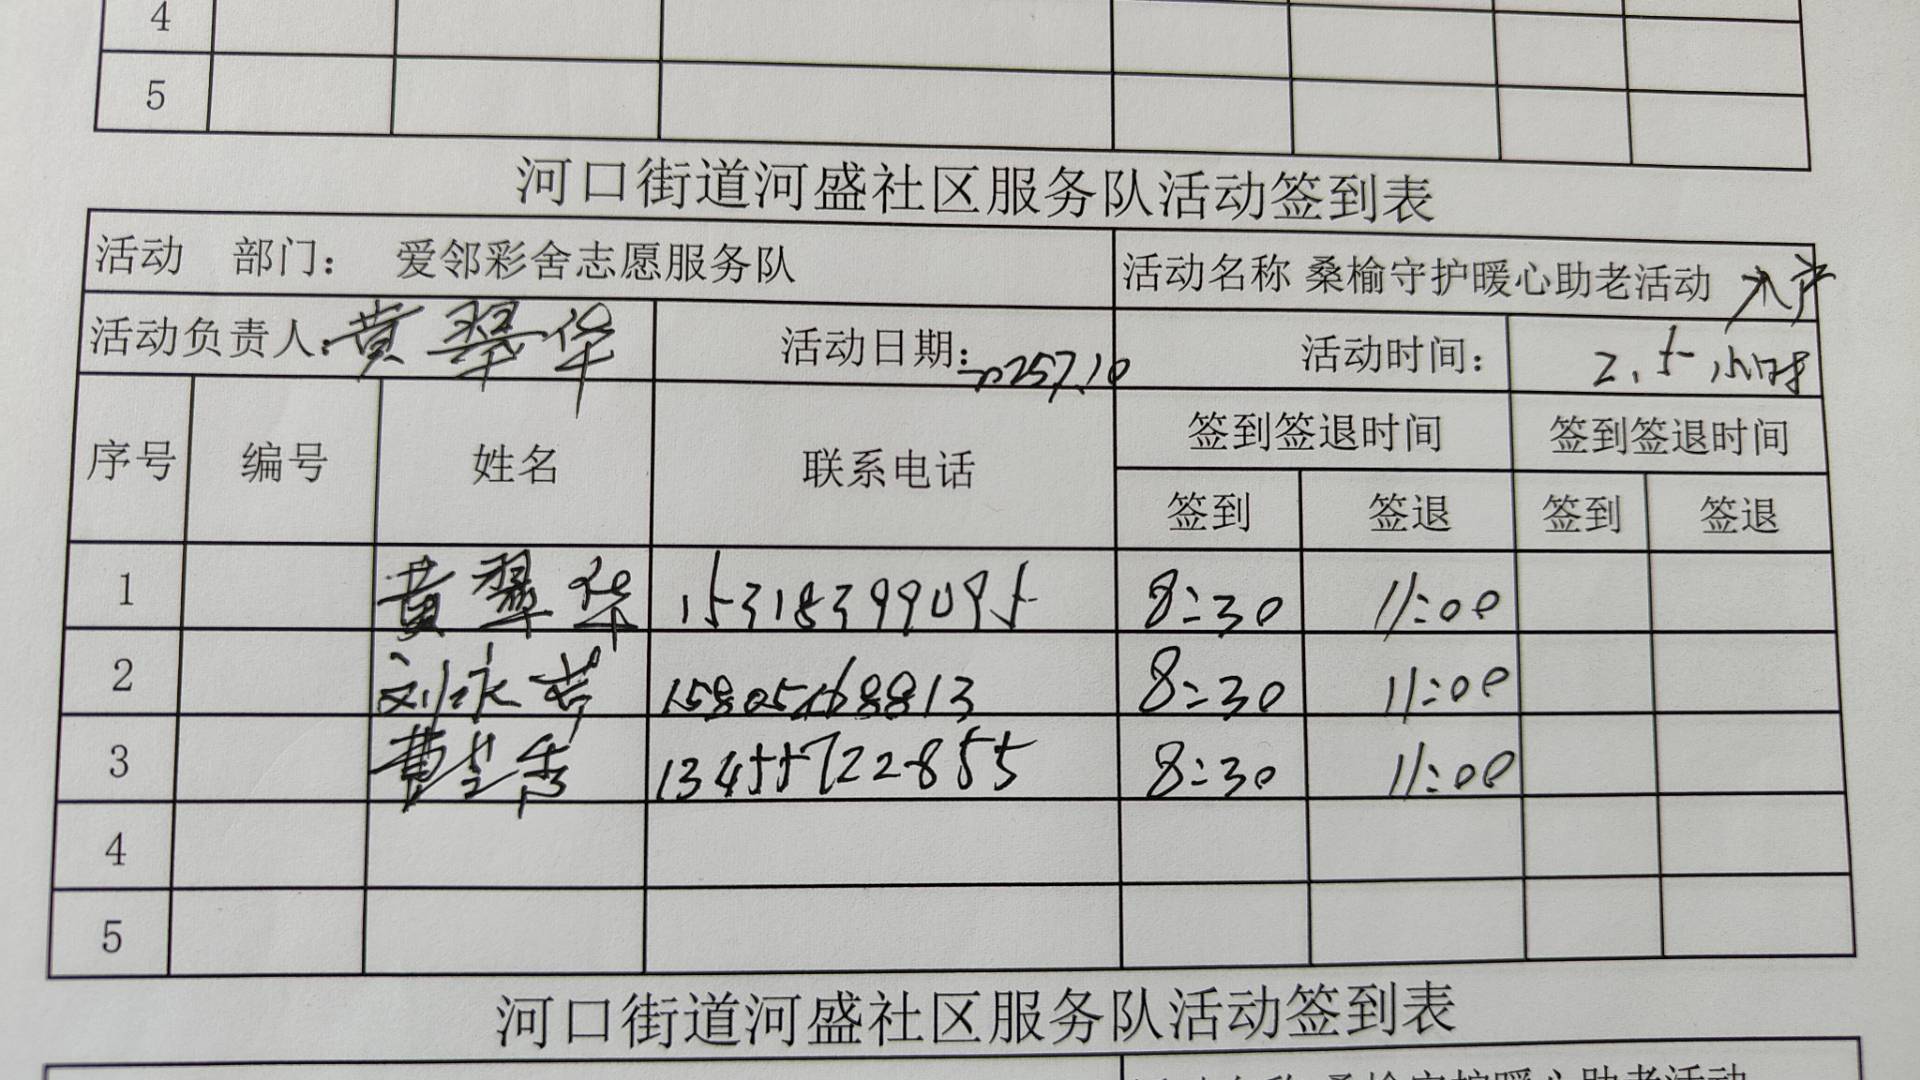 4
5
河口街道河盛社区服务队活动签到表
活动 部门： 爱邻彩舍志愿服务队 活动名称 桑榆守护暖心助老活动 入户
活动负责人：黄翠华 活动日期：2025.7.10 活动时间： 2.5小时
序号 编号 姓名 联系电话 签到签退时间 签到签退时间
签到 签退 签到 签退
1 黄翠华 15318399095 8:30 11:00
2 刘永芳 15805468813 8:30 11:00
3 费兰香 13455722855 8:30 11:00
4
5
河口街道河盛社区服务队活动签到表
活动名称 桑榆守护暖心助老活动